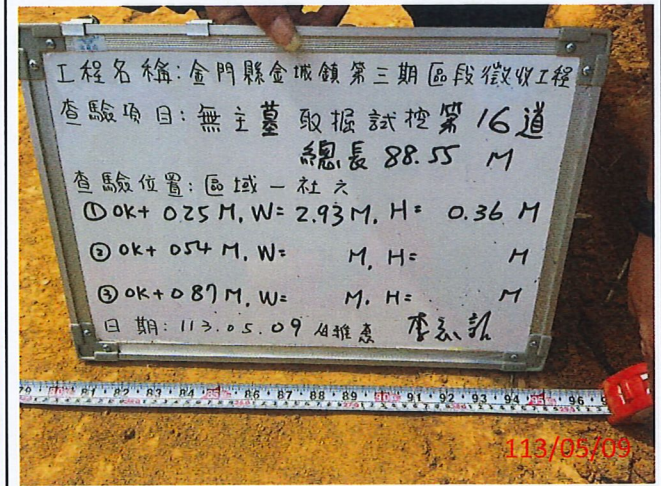 工程名稱:金門縣金城鎮第三期區段徵收工程
查驗項目:無主墓 取掘試挖第16道
總長 88.55 M
查驗位置:區域一社六
①0K+025M, W=2.93M, H=0.36M
②0K+054M, W= M, H= M
③0K+087M, W= M, H= M
日期:113.05.09
79 80 81 82 83 84 85 86 87 88 89 90 91 92 93 94 95 96
113/05/09